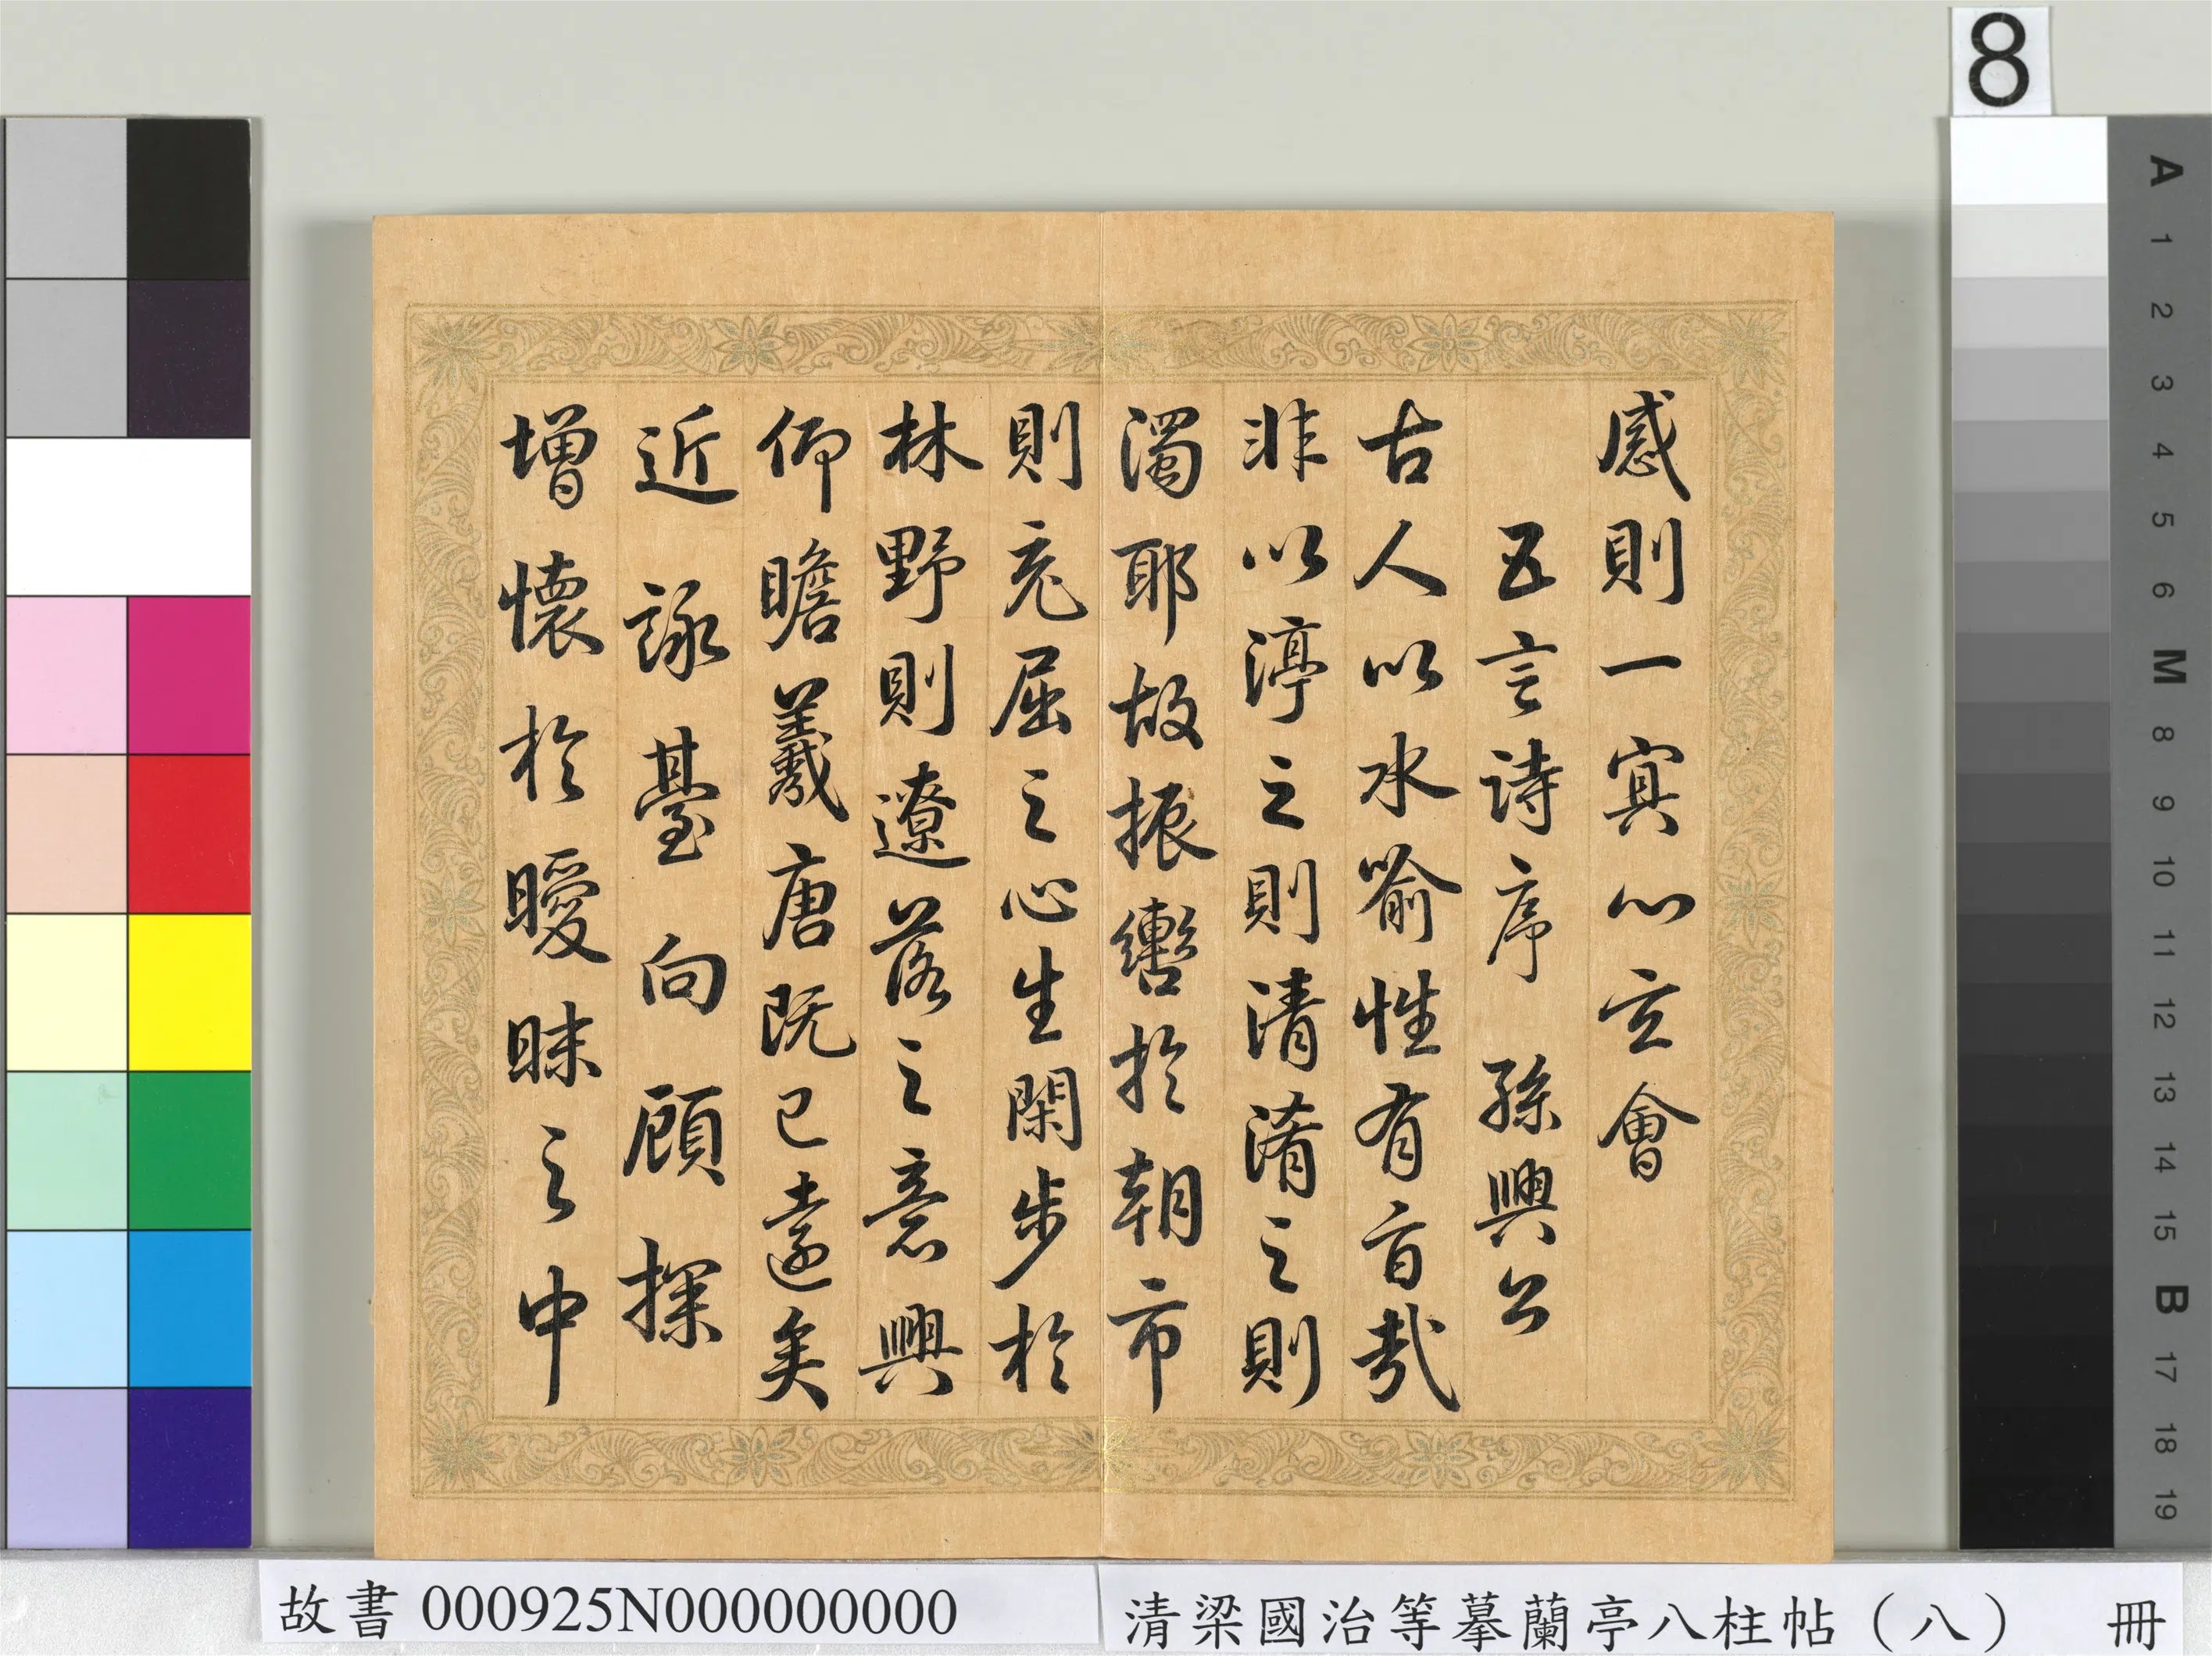 8
感則一㝠心玄會
五言詩序 孫興公
古人以水喻性有旨哉
非以渟之則清淆之則
濁耶故振轡於朝市
則充屈之心生閑步於
林野則遼落之意興
仰瞻羲唐既已遠矣
近詠臺向顧探
增懷於曖昧之中
A 1 2 3 4 5 6 M 8 9 10 11 12 13 14 15 B 17 18 19
故書 000925N000000000
清梁國治等摹蘭亭八柱帖（八） 冊